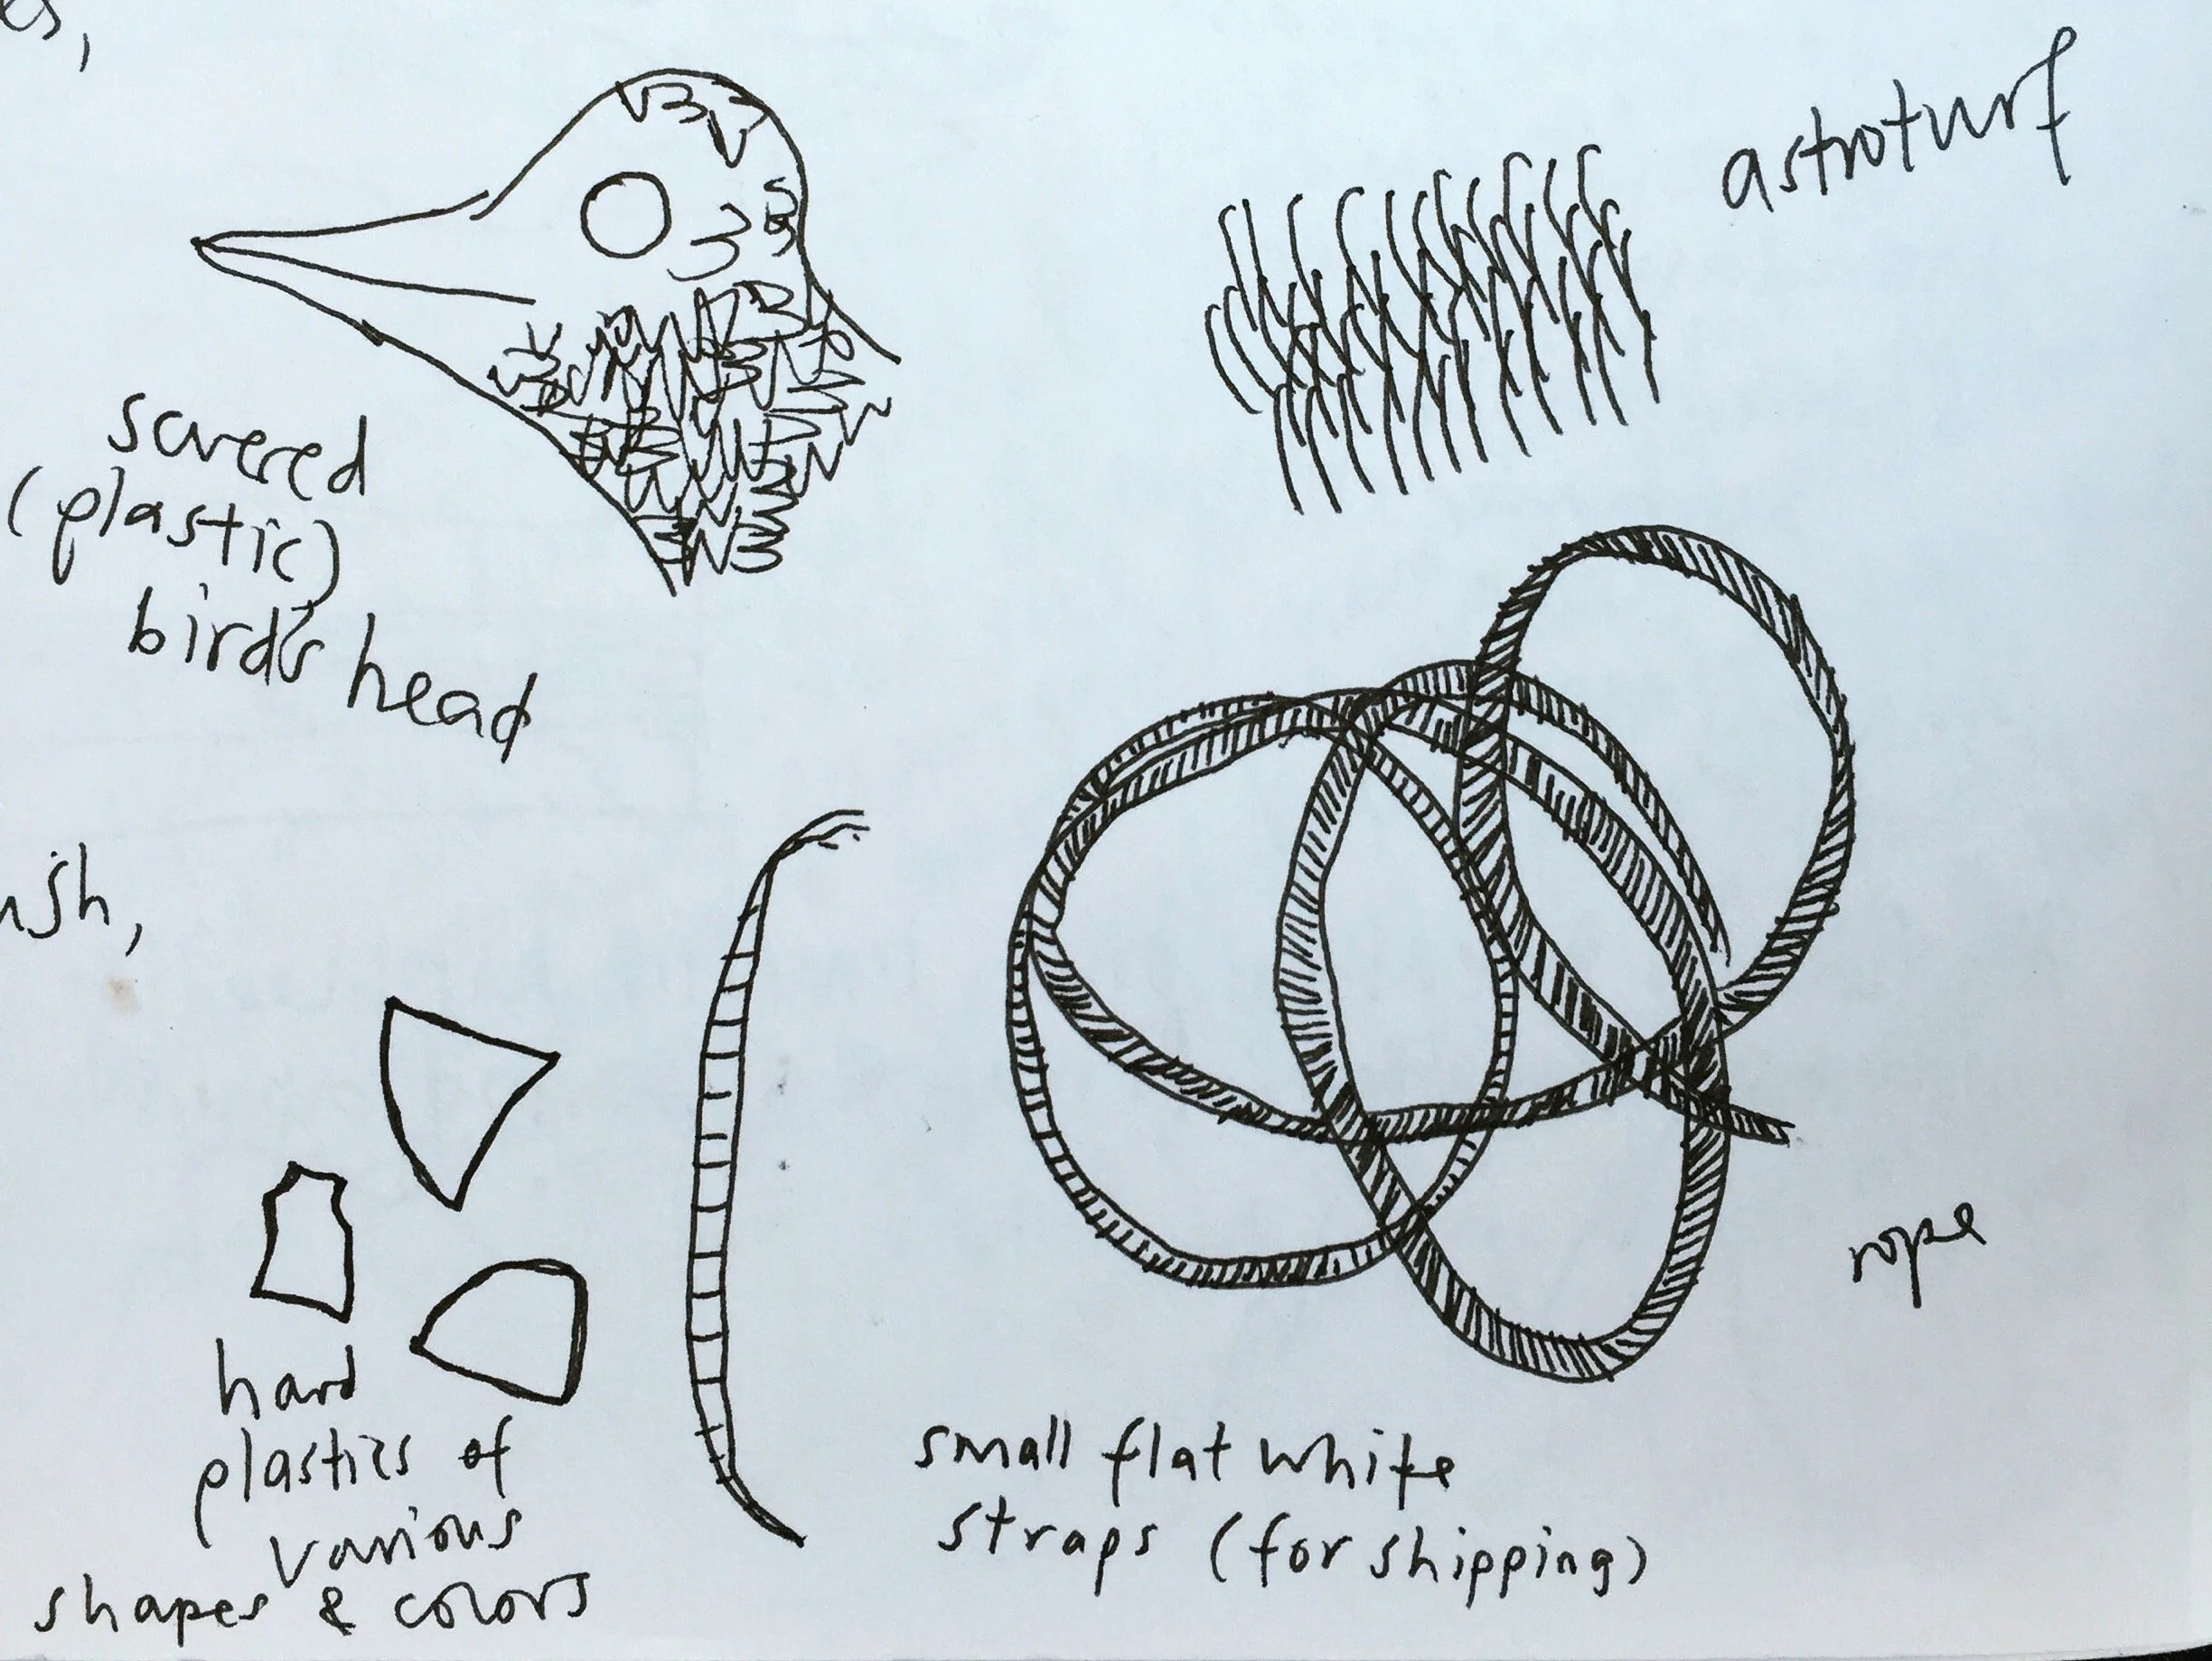 astroturf
scvered
(plastic)
bird's head
rope
hard
plastics of
various
shapes & colors
small flat white
straps (for shipping)